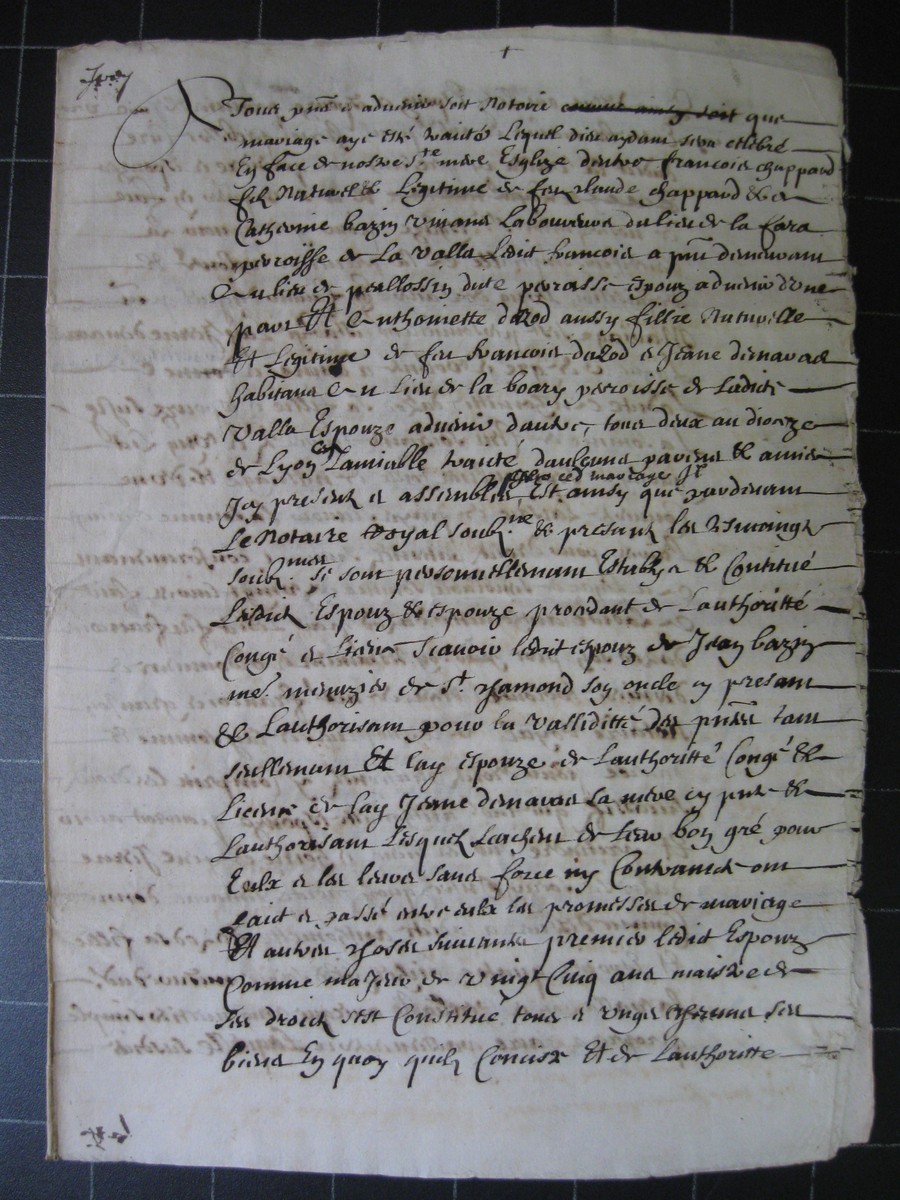 A Tous pnts & advenir soit Notoire comme ainsy soit que
mariage aye esté traitté Lequel dieu aydant sera celebré
En face de nostre Ste mere Esglize dentre francois chappard
filz Naturel & Legitime de feu claude chappard & de
Catherine bazin vivans Laboureurs du lieu de la fara
perroisse de La valla Ledit francois a pnt demeurant
En lieu de peallossin dite perroisse espouz advenir d'une
part Et Enthomette dalod aussy fillie Naturelle
Et Legitime de feu francois dalod & Jeane
habitans En Lieu de la boary perroisse de Ladite
Valla Espouze advenir dautre, tous deux au dioceze
de Lyon Et Lamiable traité daulcuns parens & amis
pour ced mariage
Icy presens & assemblés Est ainsy que pardevant
Le Notaire Royal soubz.ne & presans les tesmoingz
soubz.mes se sont personnellement Establys & Constitué
Lesdits Espouz & espouze procedant de Lauthoritté
Congé & Licence Scavoir ledit espouz de Jean bazin
me. menuzier de St chamond son oncle cy presant
& Lauthorisant pour la valliditté des pntes tant
seullement Et lay espouze de Lauthoritté Congé &
Licence de lay Jeane sa mere cy pnte &
Lauthorisant Lesquelz de Leur bon gré pour
Eulx & les leurs sans force ny Contrainte ont
faict & passé entre eulx les promesses de mariage
Et autres choses suivantes premier ledit Espouz
Comme majeur de vingt Cinq ans maistre de
ses droictz s'est Constitué tous & ungz chacuns ses
biens En quoy quilz Concistx Et de Lauthoritte